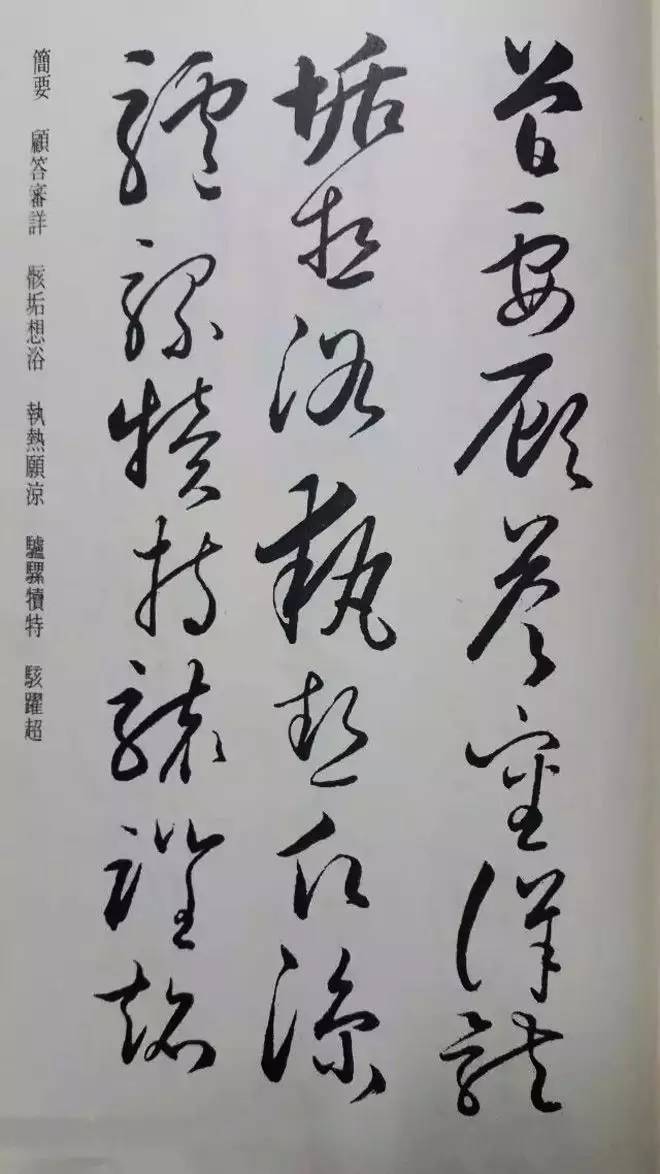 簡要顧答審詳骸
垢想浴執熱願涼
驢騾犢特駭躍超
簡要 顧答審詳 骸垢想浴 執熱願涼 驢騾犢特 駭躍超